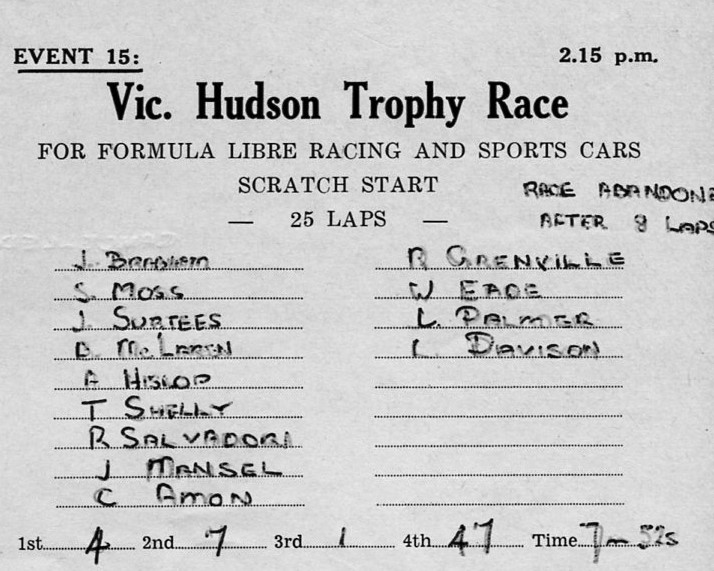 EVENT 15:
2.15 p.m.
Vic. Hudson Trophy Race
FOR FORMULA LIBRE RACING AND SPORTS CARS
SCRATCH START
— 25 LAPS —
RACE ABANDONE
AFTER 8 LAPS
J. BRABHAM
S. MOSS
J SURTEES
B McLAREN
A HISLOP
T SHELLY
R SALVADORI
J MANSEL
C AMON
R GRENVILLE
W EADE
L. PALMER
L DAVISON
1st 4 2nd 7 3rd 1 4th 47 Time 7 - 52s